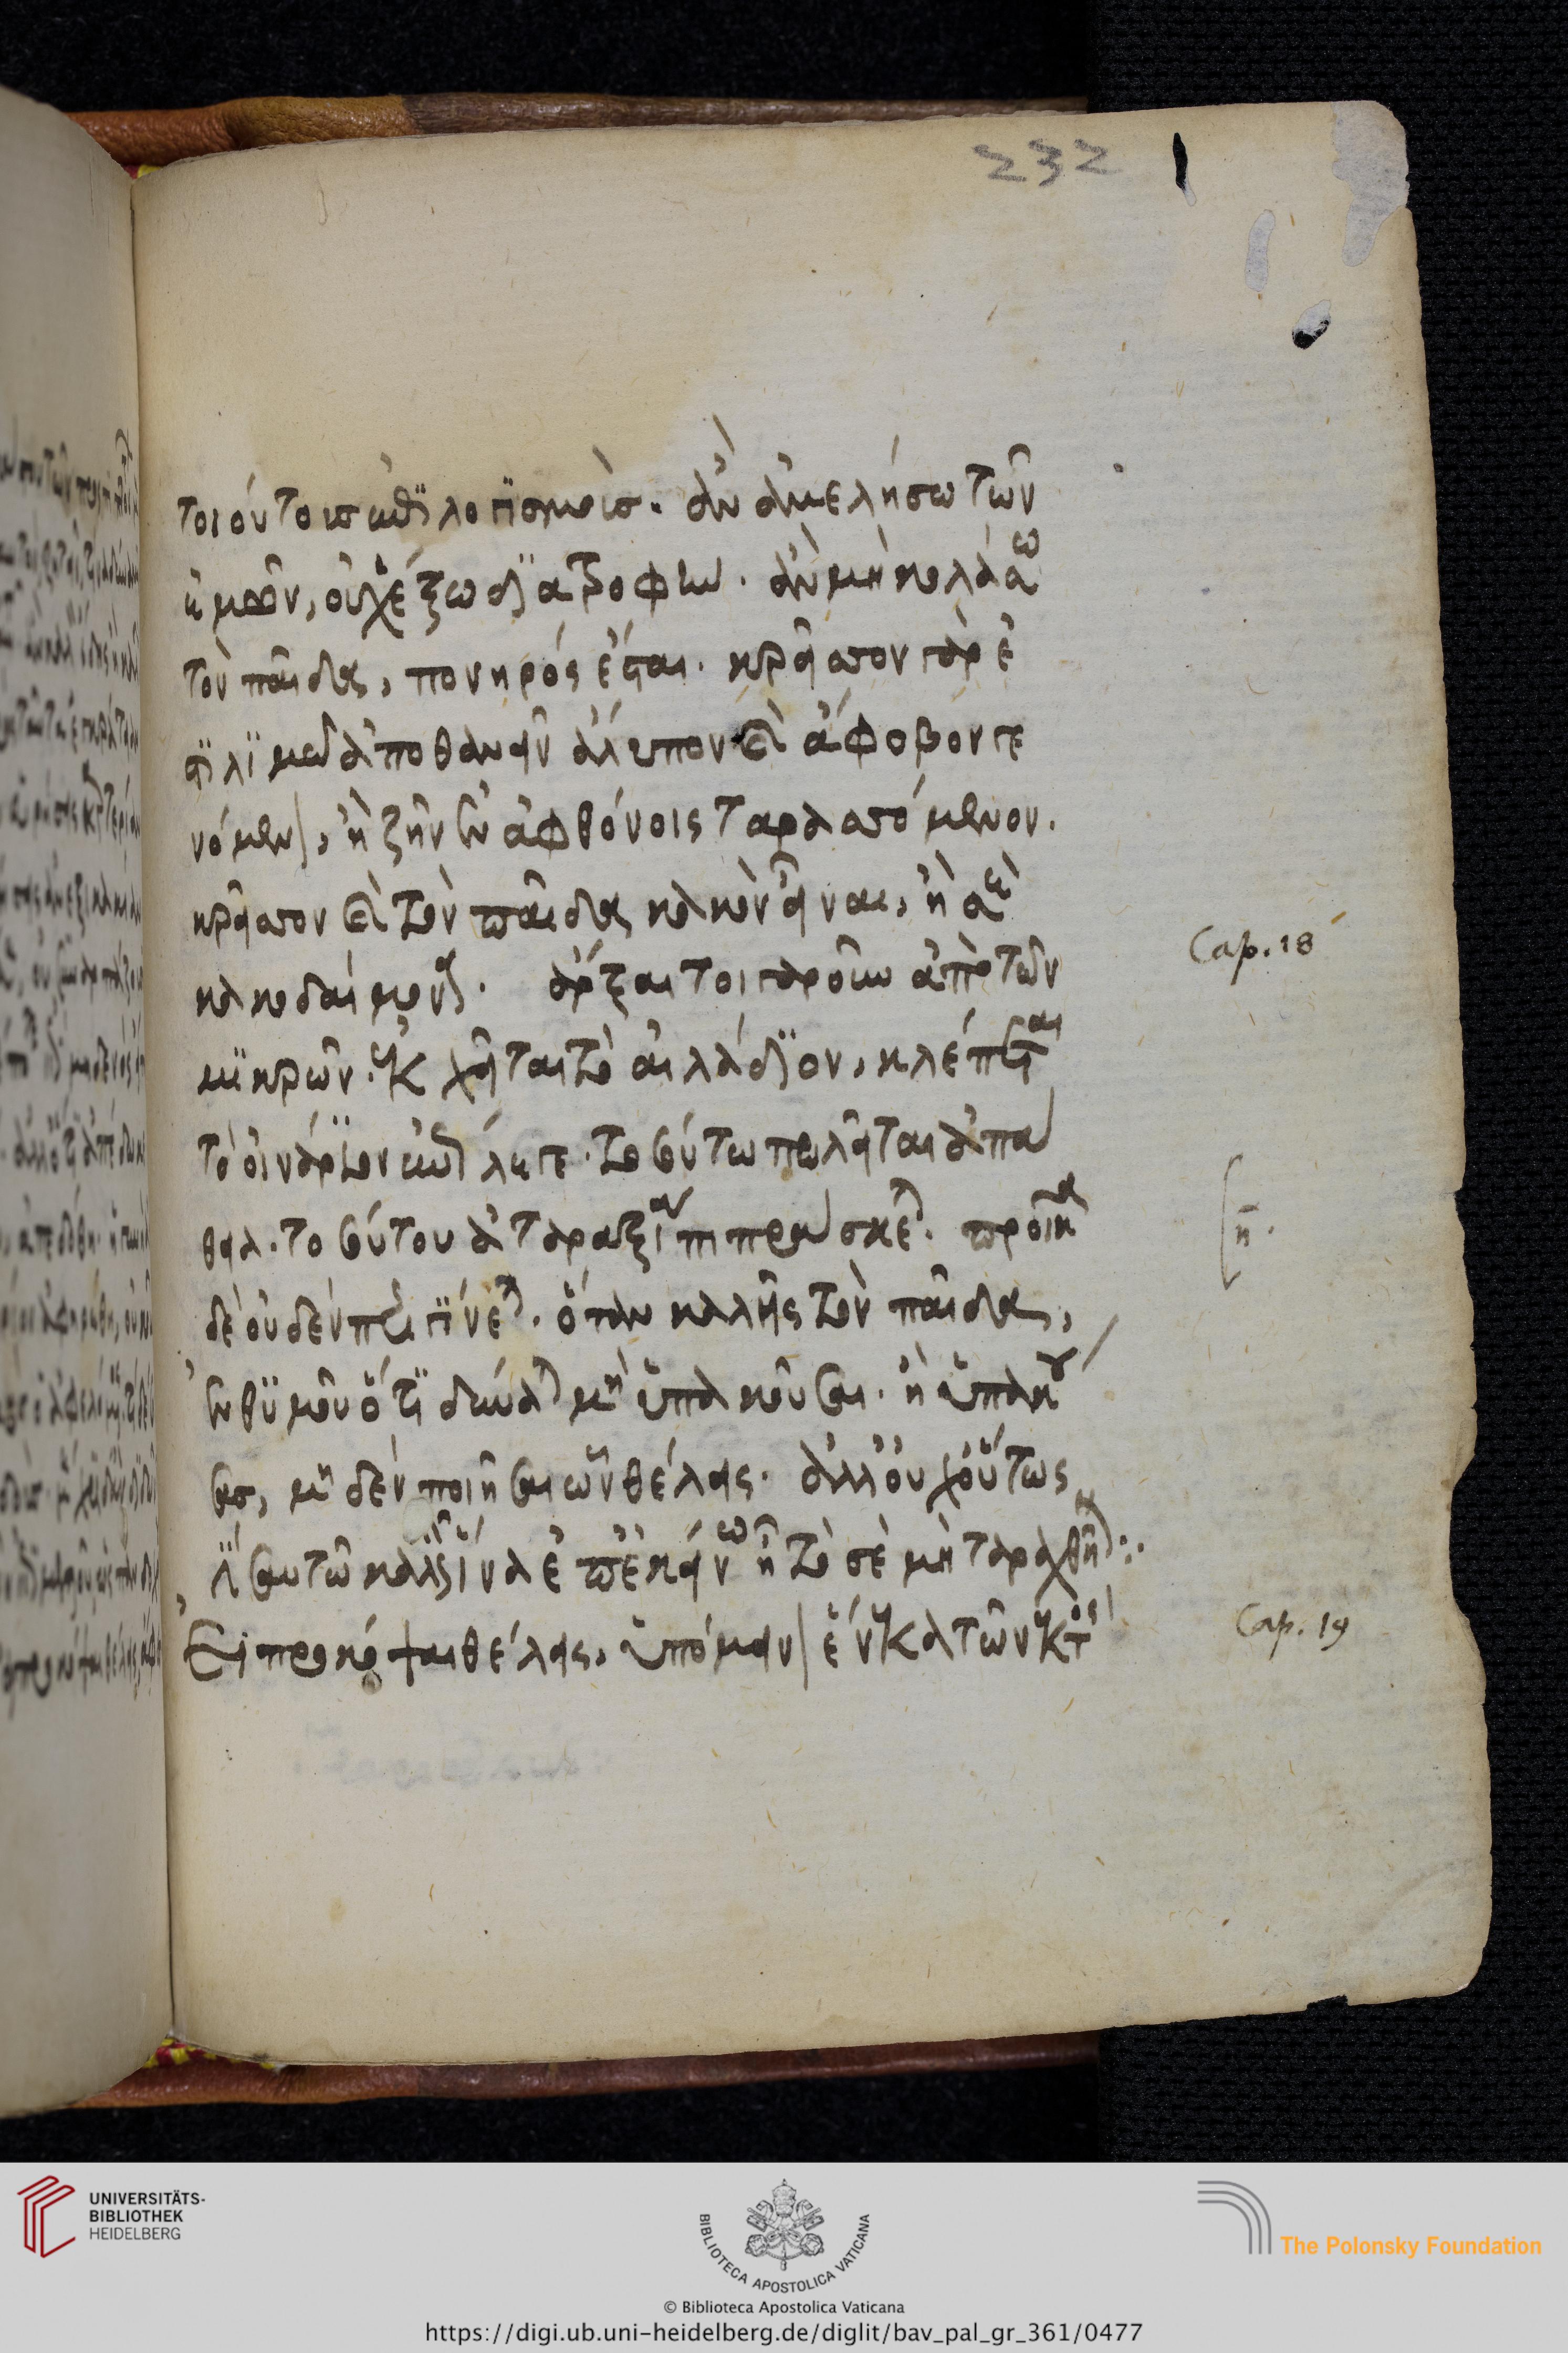 232
τοιούτους ἐπιλογισμούς. ἂν ἀμελήσω τῶν
ἐμῶν, οὐχ ἕξω διατροφήν. ἂν μὴ κολάσω
τὸν παῖδα, πονηρός ἔσται. κρεῖσσον γὰρ ἐ
στὶ λιμῶ ἀποθανεῖν ἄλυπον καὶ ἄφοβον γε
νόμενον, ἢ ζῆν ἐν ἀφθόνοις ταρασσόμενον.
κρεῖσσον καὶ τὸν παῖδα κακὸν εἶναι, ἢ σὲ
κακοδαίμονα. ἄρξαι τοιγαροῦν ἀπὸ τῶν
μικρῶν. ἐκχεῖται τὸ ἐλάδιον, κλέπτεται
τὸ οἰνάριον ἐπίλεγε. τοσούτω πωλεῖται ἀπά
θεια. τοσούτου ἀταραξία πιπράσκεται. προῖκα
δὲ οὐδὲν περιγίνεται. ὅταν καλῆς τὸν παῖδα,
ἐνθυμοῦ ὅτι δύναται μὴ ὑπακοῦσαι. ἢ ὑπακού
σας, μηδὲν ποιῆσαι ὧν θέλεις. ἀλλ' οὐχ οὕτως
ἐστὶν αὐτῶ καλῶς ἵνα ἐπ' ἐκείνω ἦ τὸ σὲ μὴ ταραχθῆναι:.
Εἰ προκόψαι θέλεις, ὑπόμεινον ἕνεκα τῶν ἐκτὸς
Cap. 18
η.
Cap. 19
UNIVERSITÄTS-
BIBLIOTHEK
HEIDELBERG
BIBLIOTECA APOSTOLICA VATICANA
The Polonsky Foundation
© Biblioteca Apostolica Vaticana
https://digi.ub.uni-heidelberg.de/diglit/bav_pal_gr_361/0477